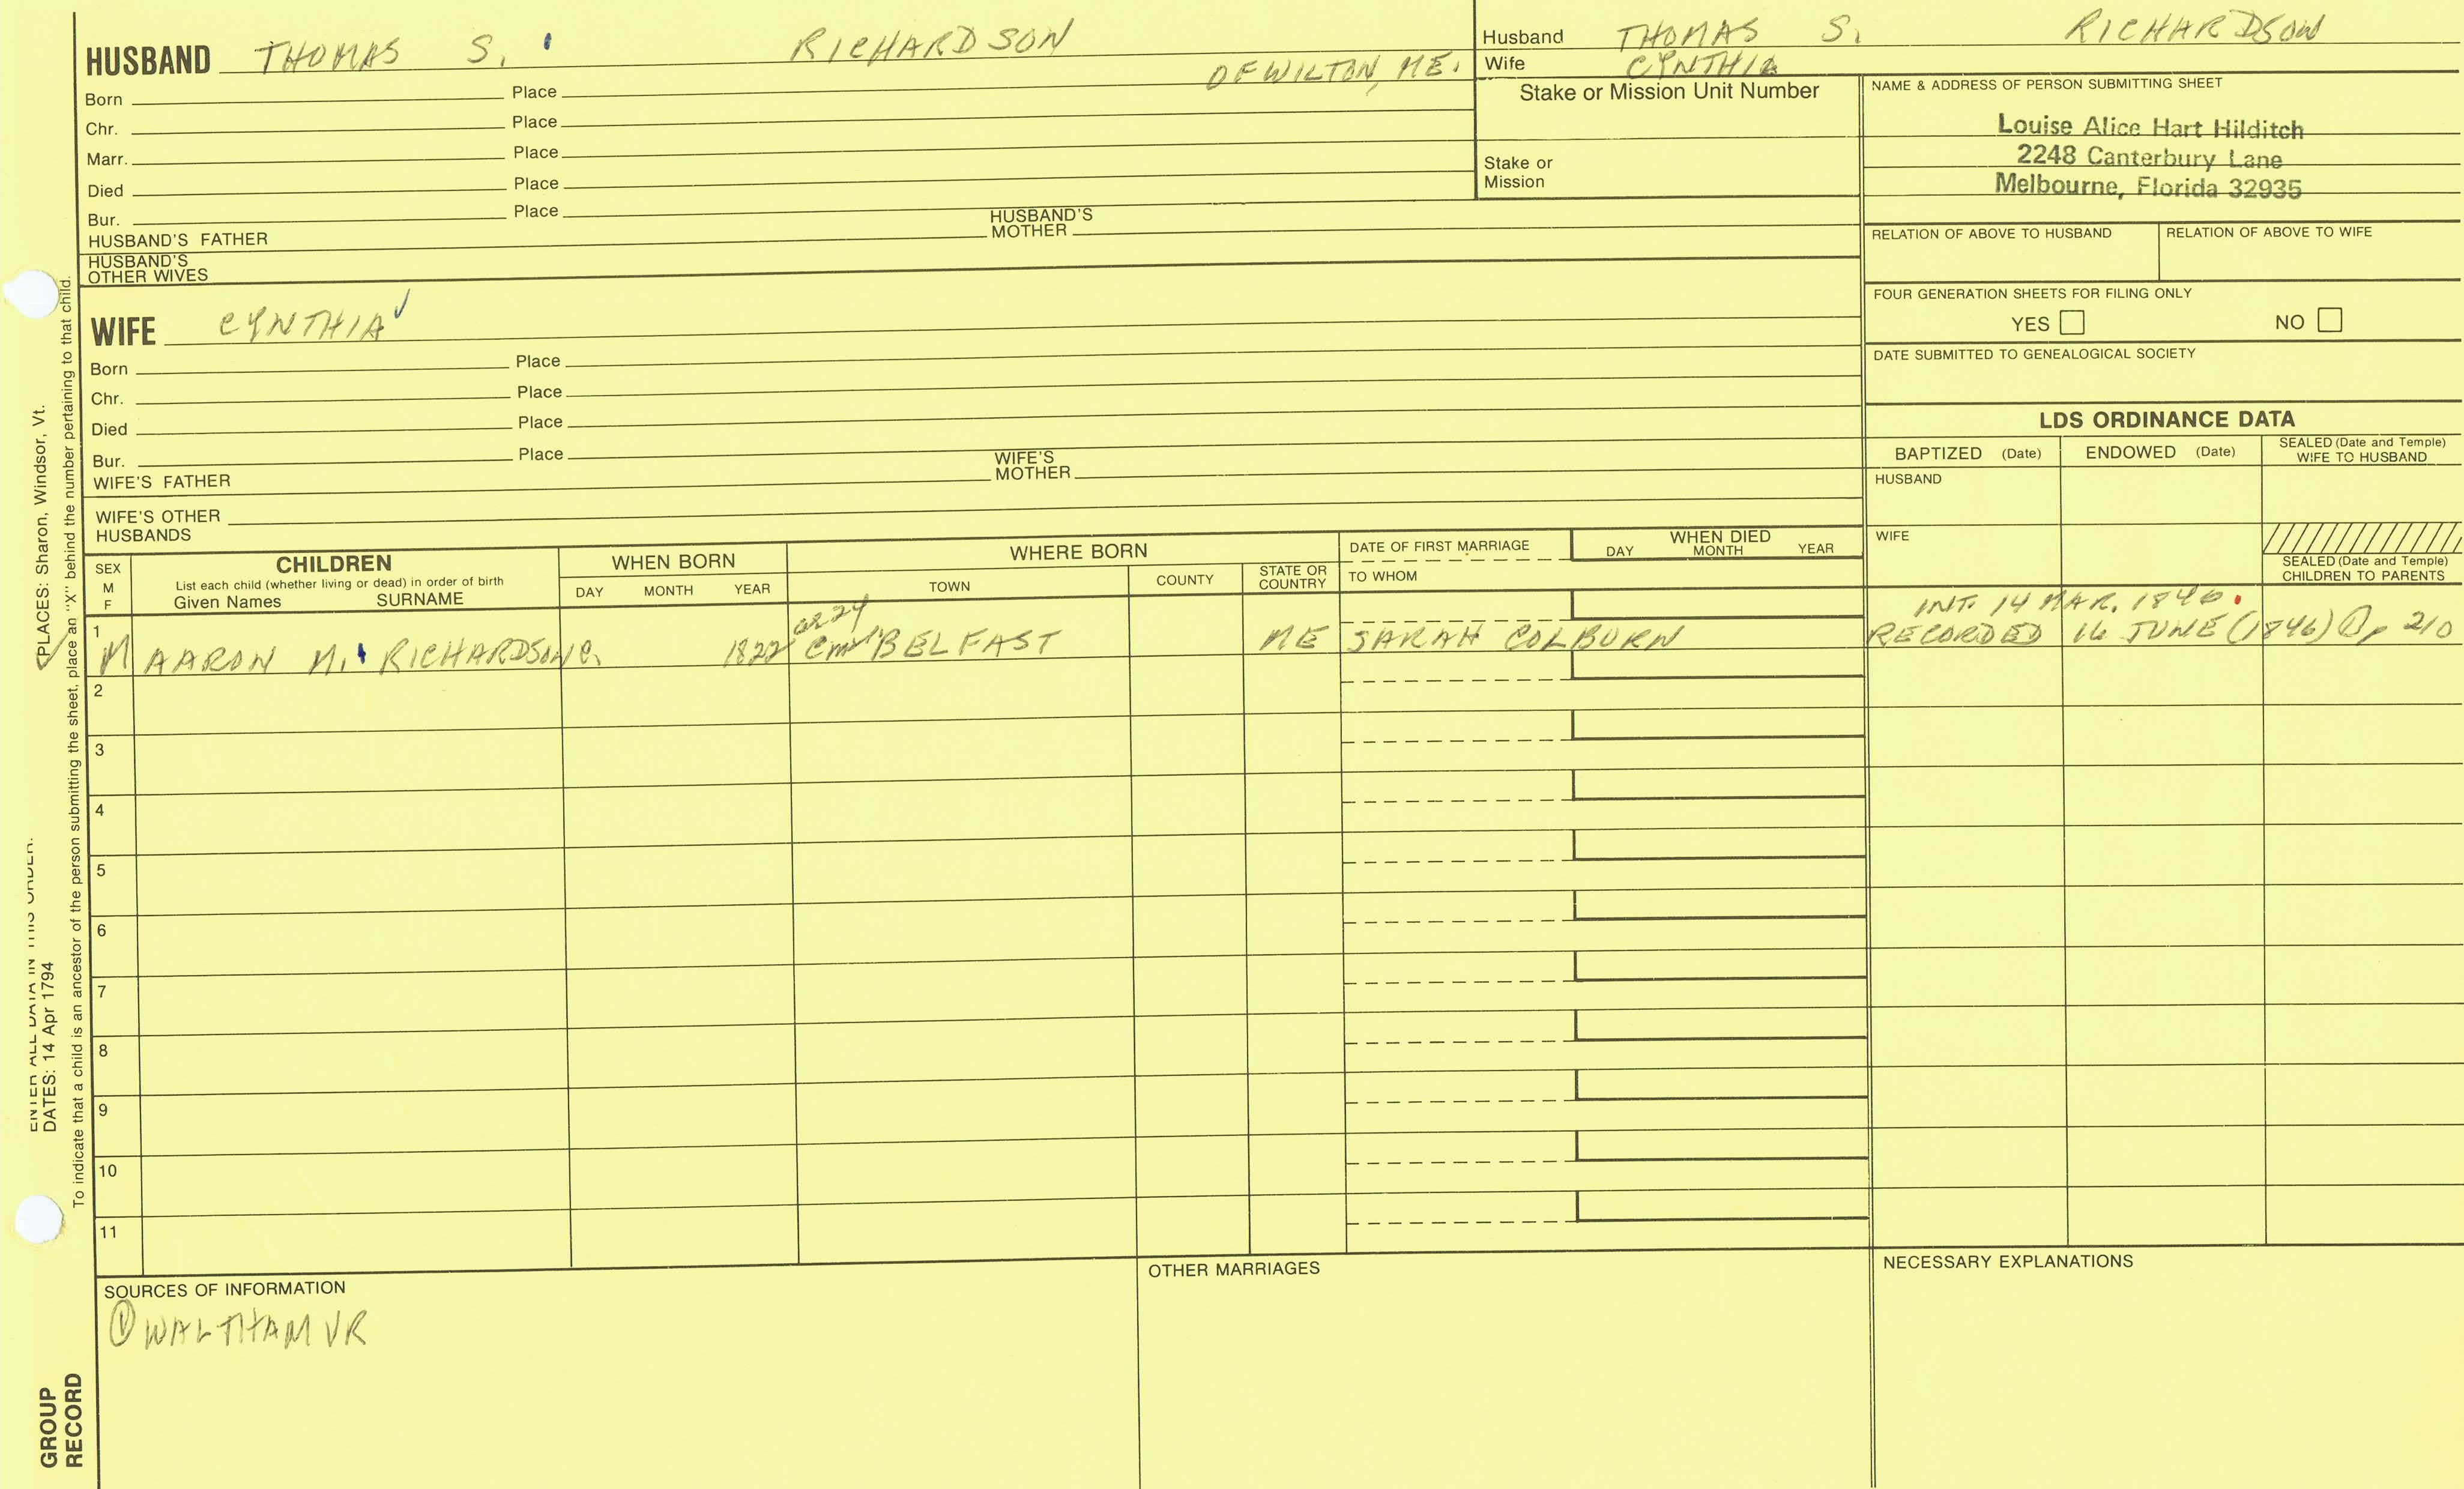 HUSBAND THOMAS S. RICHARDSON
OF WILTON, ME.
Born Place
Chr. Place
Marr. Place
Died Place
Bur. Place
HUSBAND'S FATHER HUSBAND'S MOTHER
HUSBAND'S OTHER WIVES
WIFE CYNTHIA
Born Place
Chr. Place
Died Place
Bur. Place
WIFE'S FATHER WIFE'S MOTHER
WIFE'S OTHER HUSBANDS
Husband THOMAS S. RICHARDSON
Wife CYNTHIA
Stake or Mission Unit Number
Stake or
Mission
NAME & ADDRESS OF PERSON SUBMITTING SHEET
Louise Alice Hart Hilditch
2248 Canterbury Lane
Melbourne, Florida 32935
RELATION OF ABOVE TO HUSBAND RELATION OF ABOVE TO WIFE
FOUR GENERATION SHEETS FOR FILING ONLY
YES NO
DATE SUBMITTED TO GENEALOGICAL SOCIETY
LDS ORDINANCE DATA
BAPTIZED (Date) ENDOWED (Date) SEALED (Date and Temple) WIFE TO HUSBAND
HUSBAND
WIFE
SEALED (Date and Temple)
CHILDREN TO PARENTS
SEX
M
F
CHILDREN
List each child (whether living or dead) in order of birth
Given Names SURNAME
WHEN BORN
DAY MONTH YEAR
WHERE BORN
TOWN COUNTY STATE OR COUNTRY
DATE OF FIRST MARRIAGE
TO WHOM
WHEN DIED
DAY MONTH YEAR
or 24 INT. 14 MAR. 1846.
1 M AARON M. RICHARDSON C. 1822 BELFAST ME SARAH COLBURN RECORDED 16 JUNE (1846) ① p 210
2
3
4
5
6
7
8
9
10
11
SOURCES OF INFORMATION
① WALTHAM VR
OTHER MARRIAGES
NECESSARY EXPLANATIONS
ENTER ALL DATA IN THIS ORDER:
DATES: 14 Apr 1794
PLACES: Sharon, Windsor, Vt.
To indicate that a child is an ancestor of the person submitting the sheet, place an "X" behind the number pertaining to that child.
GROUP
RECORD